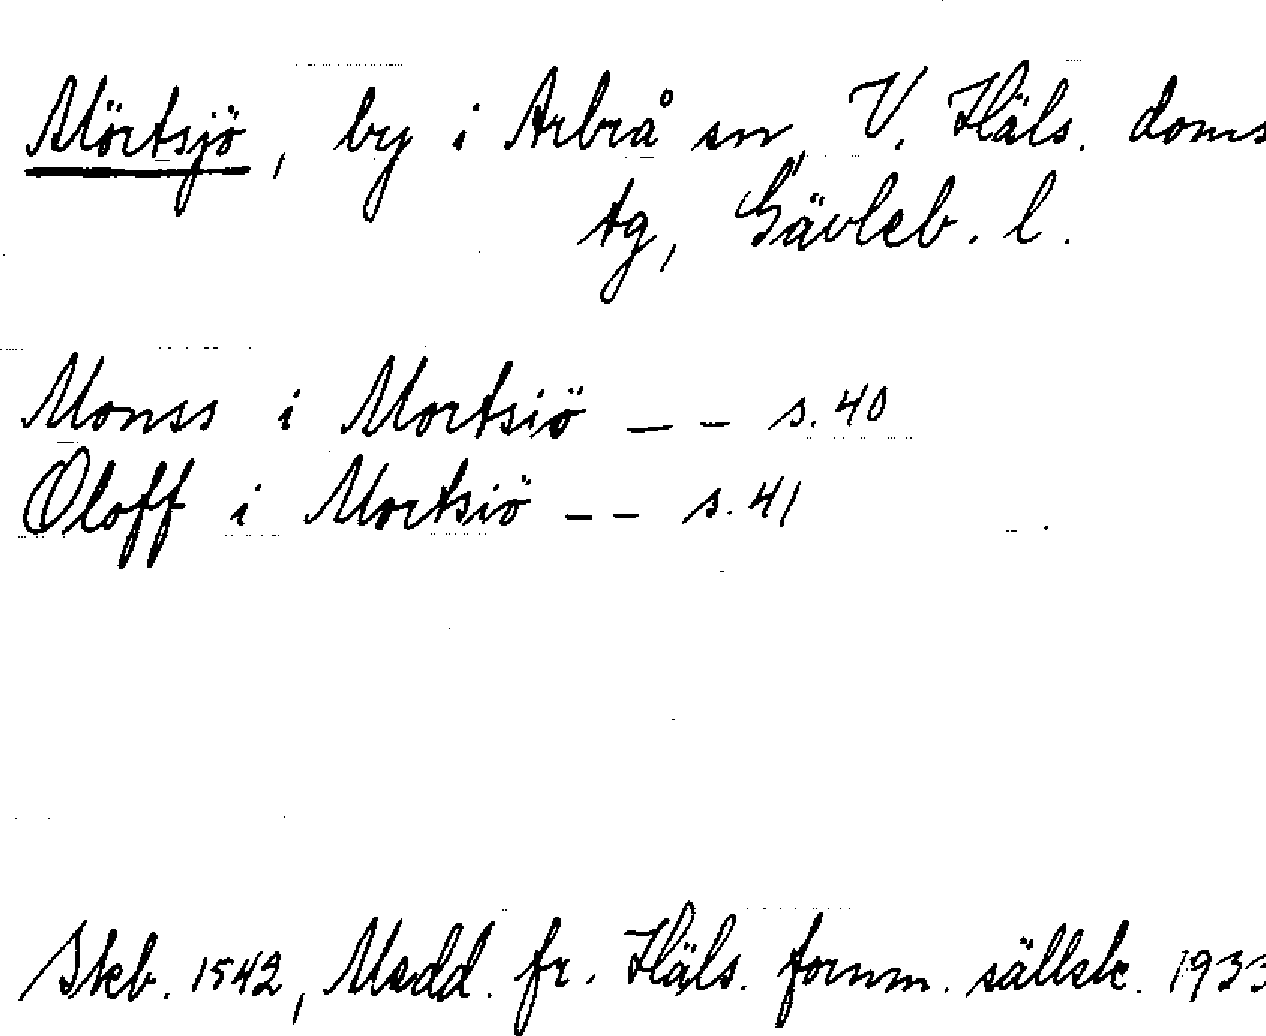 Mörtsjö, by i Arbrå sn, V. Häls. doms
tg, Gävleb. l.
Monss i Mortsiö -- s. 40
Oloff i Mortsiö -- s. 41
Skeb. 1542, Medd. fr. Häls. fornm. sällsk. 1933